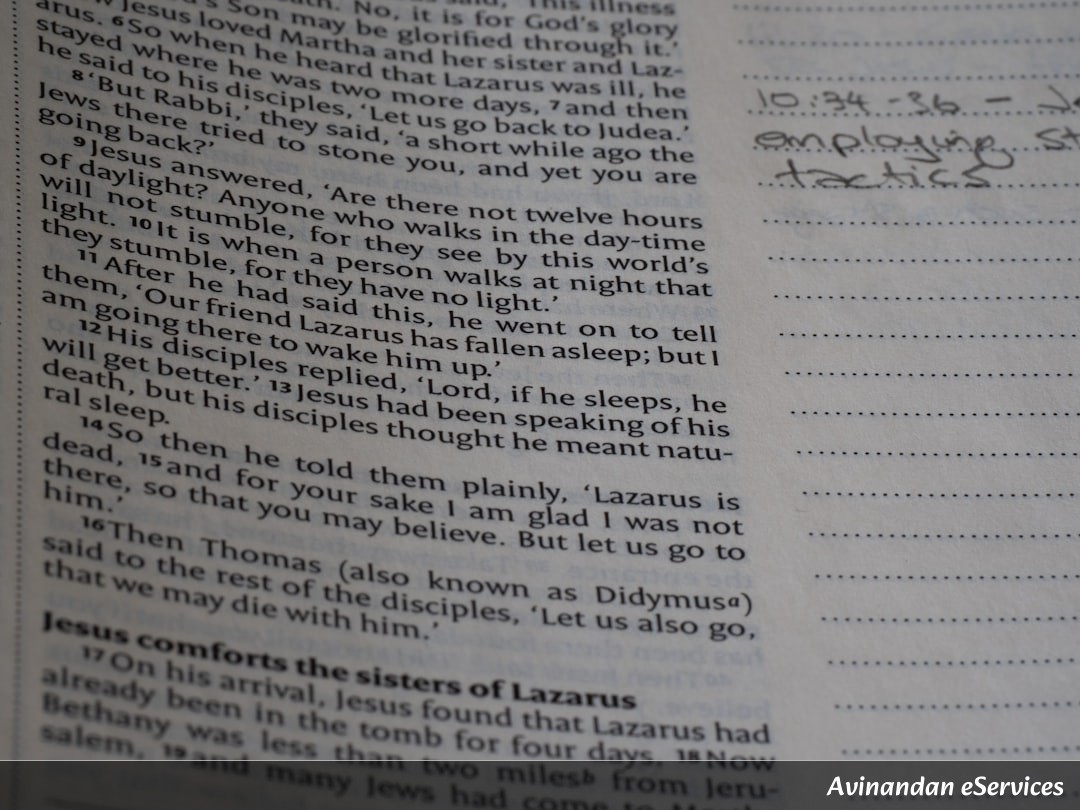 said, 'This illness
death. No, it is for God's glory
Son may be glorified through it.'
Jesus loved Martha and her sister and Laz-
arus. 6 So when he heard that Lazarus was ill, he
stayed where he was two more days, 7 and then
he said to his disciples, 'Let us go back to Judea.'
8 'But Rabbi,' they said, 'a short while ago the
Jews there tried to stone you, and yet you are
going back?'
9 Jesus answered, 'Are there not twelve hours
of daylight? Anyone who walks in the day-time
will not stumble, for they see by this world's
light. 10 It is when a person walks at night that
they stumble, for they have no light.'
11 After he had said this, he went on to tell
them, 'Our friend Lazarus has fallen asleep; but I
am going there to wake him up.'
12 His disciples replied, 'Lord, if he sleeps, he
will get better.' 13 Jesus had been speaking of his
death, but his disciples thought he meant natu-
ral sleep.
14 So then he told them plainly, 'Lazarus is
dead, 15 and for your sake I am glad I was not
there, so that you may believe. But let us go to
him.'
16 Then Thomas (also known as Didymus a)
said to the rest of the disciples, 'Let us also go,
that we may die with him.'
Jesus comforts the sisters of Lazarus
17 On his arrival, Jesus found that Lazarus had
already been in the tomb for four days. 18 Now
Bethany was less than two miles b from Jeru-
salem, 19 and many Jews had come to
10:34-36 -
employing
tactics
Avinandan eServices